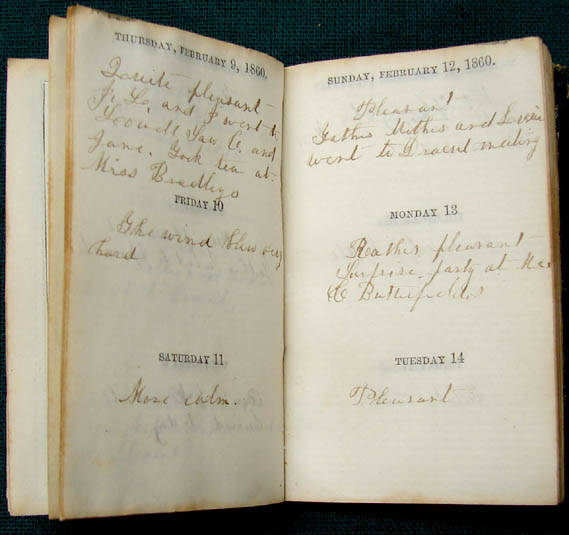 THURSDAY, FEBRUARY 9, 1860.
Quite pleasant –
J. L. and I went to
Lowell Saw C. and
Jane. Took tea at
Miss Bradleys
FRIDAY 10
The wind blew very
hard
SATURDAY 11
More calm.
SUNDAY, FEBRUARY 12, 1860.
Pleasant
Father Mother and
went to Dracut meeting
MONDAY 13
Rather pleasant –
Surprise party at Mr
C Butterfields
TUESDAY 14
Pleasant